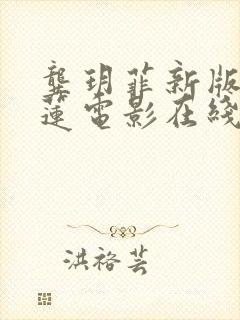 龔玥菲新版
蓮電影在綫
洪裕芸